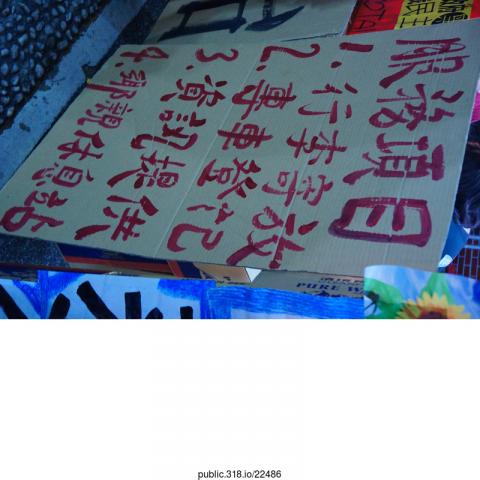 服務項目
1.行李寄放
2.專車登記
3.資訊提供
4.鄉親休息站
PURE W
public.318.io/22486